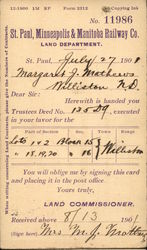 12-1900 1M RF Form 2212 Copying Ink
No. 11986
St. Paul, Minneapolis & Manitoba Railway Co.
LAND DEPARTMENT.
St. Paul, July 27 1901
Margaret J. Mathews
Williston N.D.
Dear Sir:
Herewith is handed you
Trustees Deed No. 12529, executed
to your favor for the
Part of Section Sec. Town. Range
Lots 1 & 2 Block 15 Williston
" 18, 19, 20 " 16
You will oblige me by signing this
card and placing it in the post office.
Yours truly,
LAND COMMISSIONER.
Received above 8/13 1901
Mrs M. J.
When writing concerning Land Contracts, please give the Numbers of Contracts.